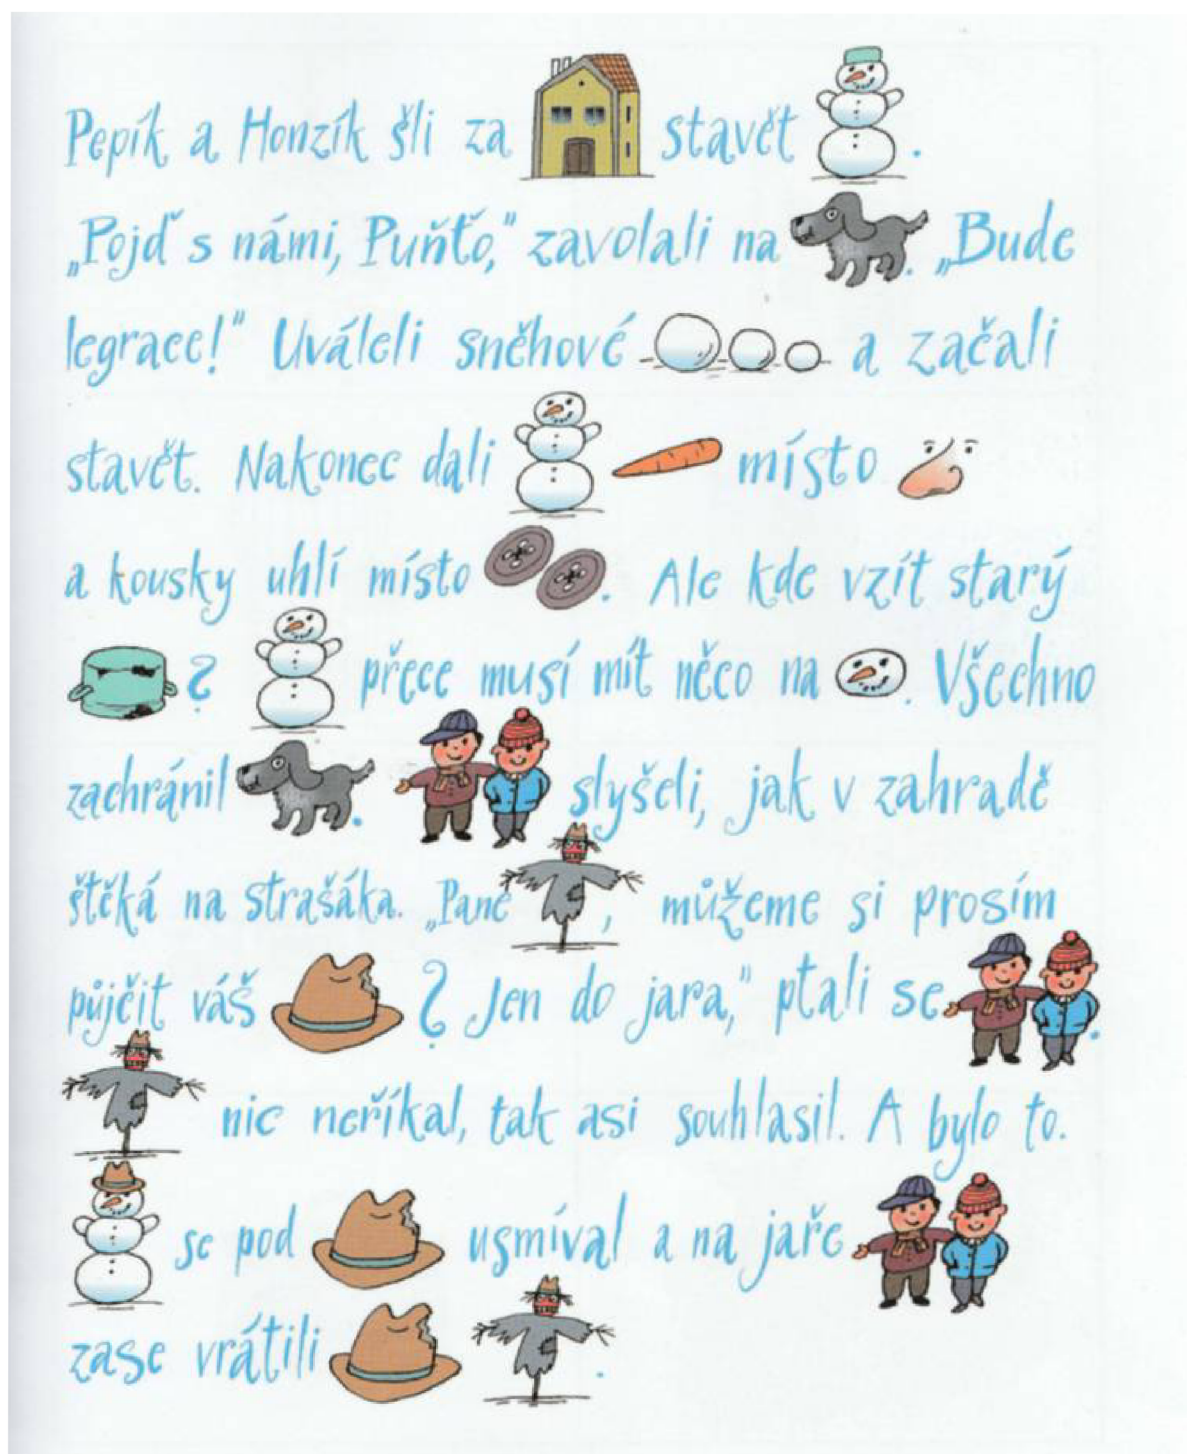 Pepík a Honzík šli za stavět .
„Pojď s námi, Puňťo,“ zavolali na . „Bude
legrace!“ Uváleli sněhové a začali
stavět. Nakonec dali místo
a kousky uhlí místo . Ale kde vzít starý
? přece musí mít něco na . Všechno
zachránil . slyšeli, jak v zahradě
štěká na strašáka. „Pane , můžeme si prosím
půjčit váš ? Jen do jara,“ ptali se .
nic neříkal, tak asi souhlasil. A bylo to.
se pod usmíval a na jaře
zase vrátili .